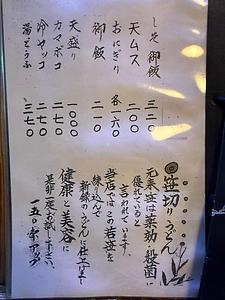 しそ御飯 三二〇
天ムス
おにぎり 各一六〇
御飯 二一〇
天盛り 一〇〇
カマボコ 二七〇
冷ヤッコ 二七〇
湯どうふ 三七〇
◎笹切りうどん
元来笹は薬効・殺菌に
優れていると
言われています、
当店ではこの若笹を
練り込んで
新緑のうどんに仕上げ
健康と美容に
是非一度お試し下さい、
一五〇円アップ